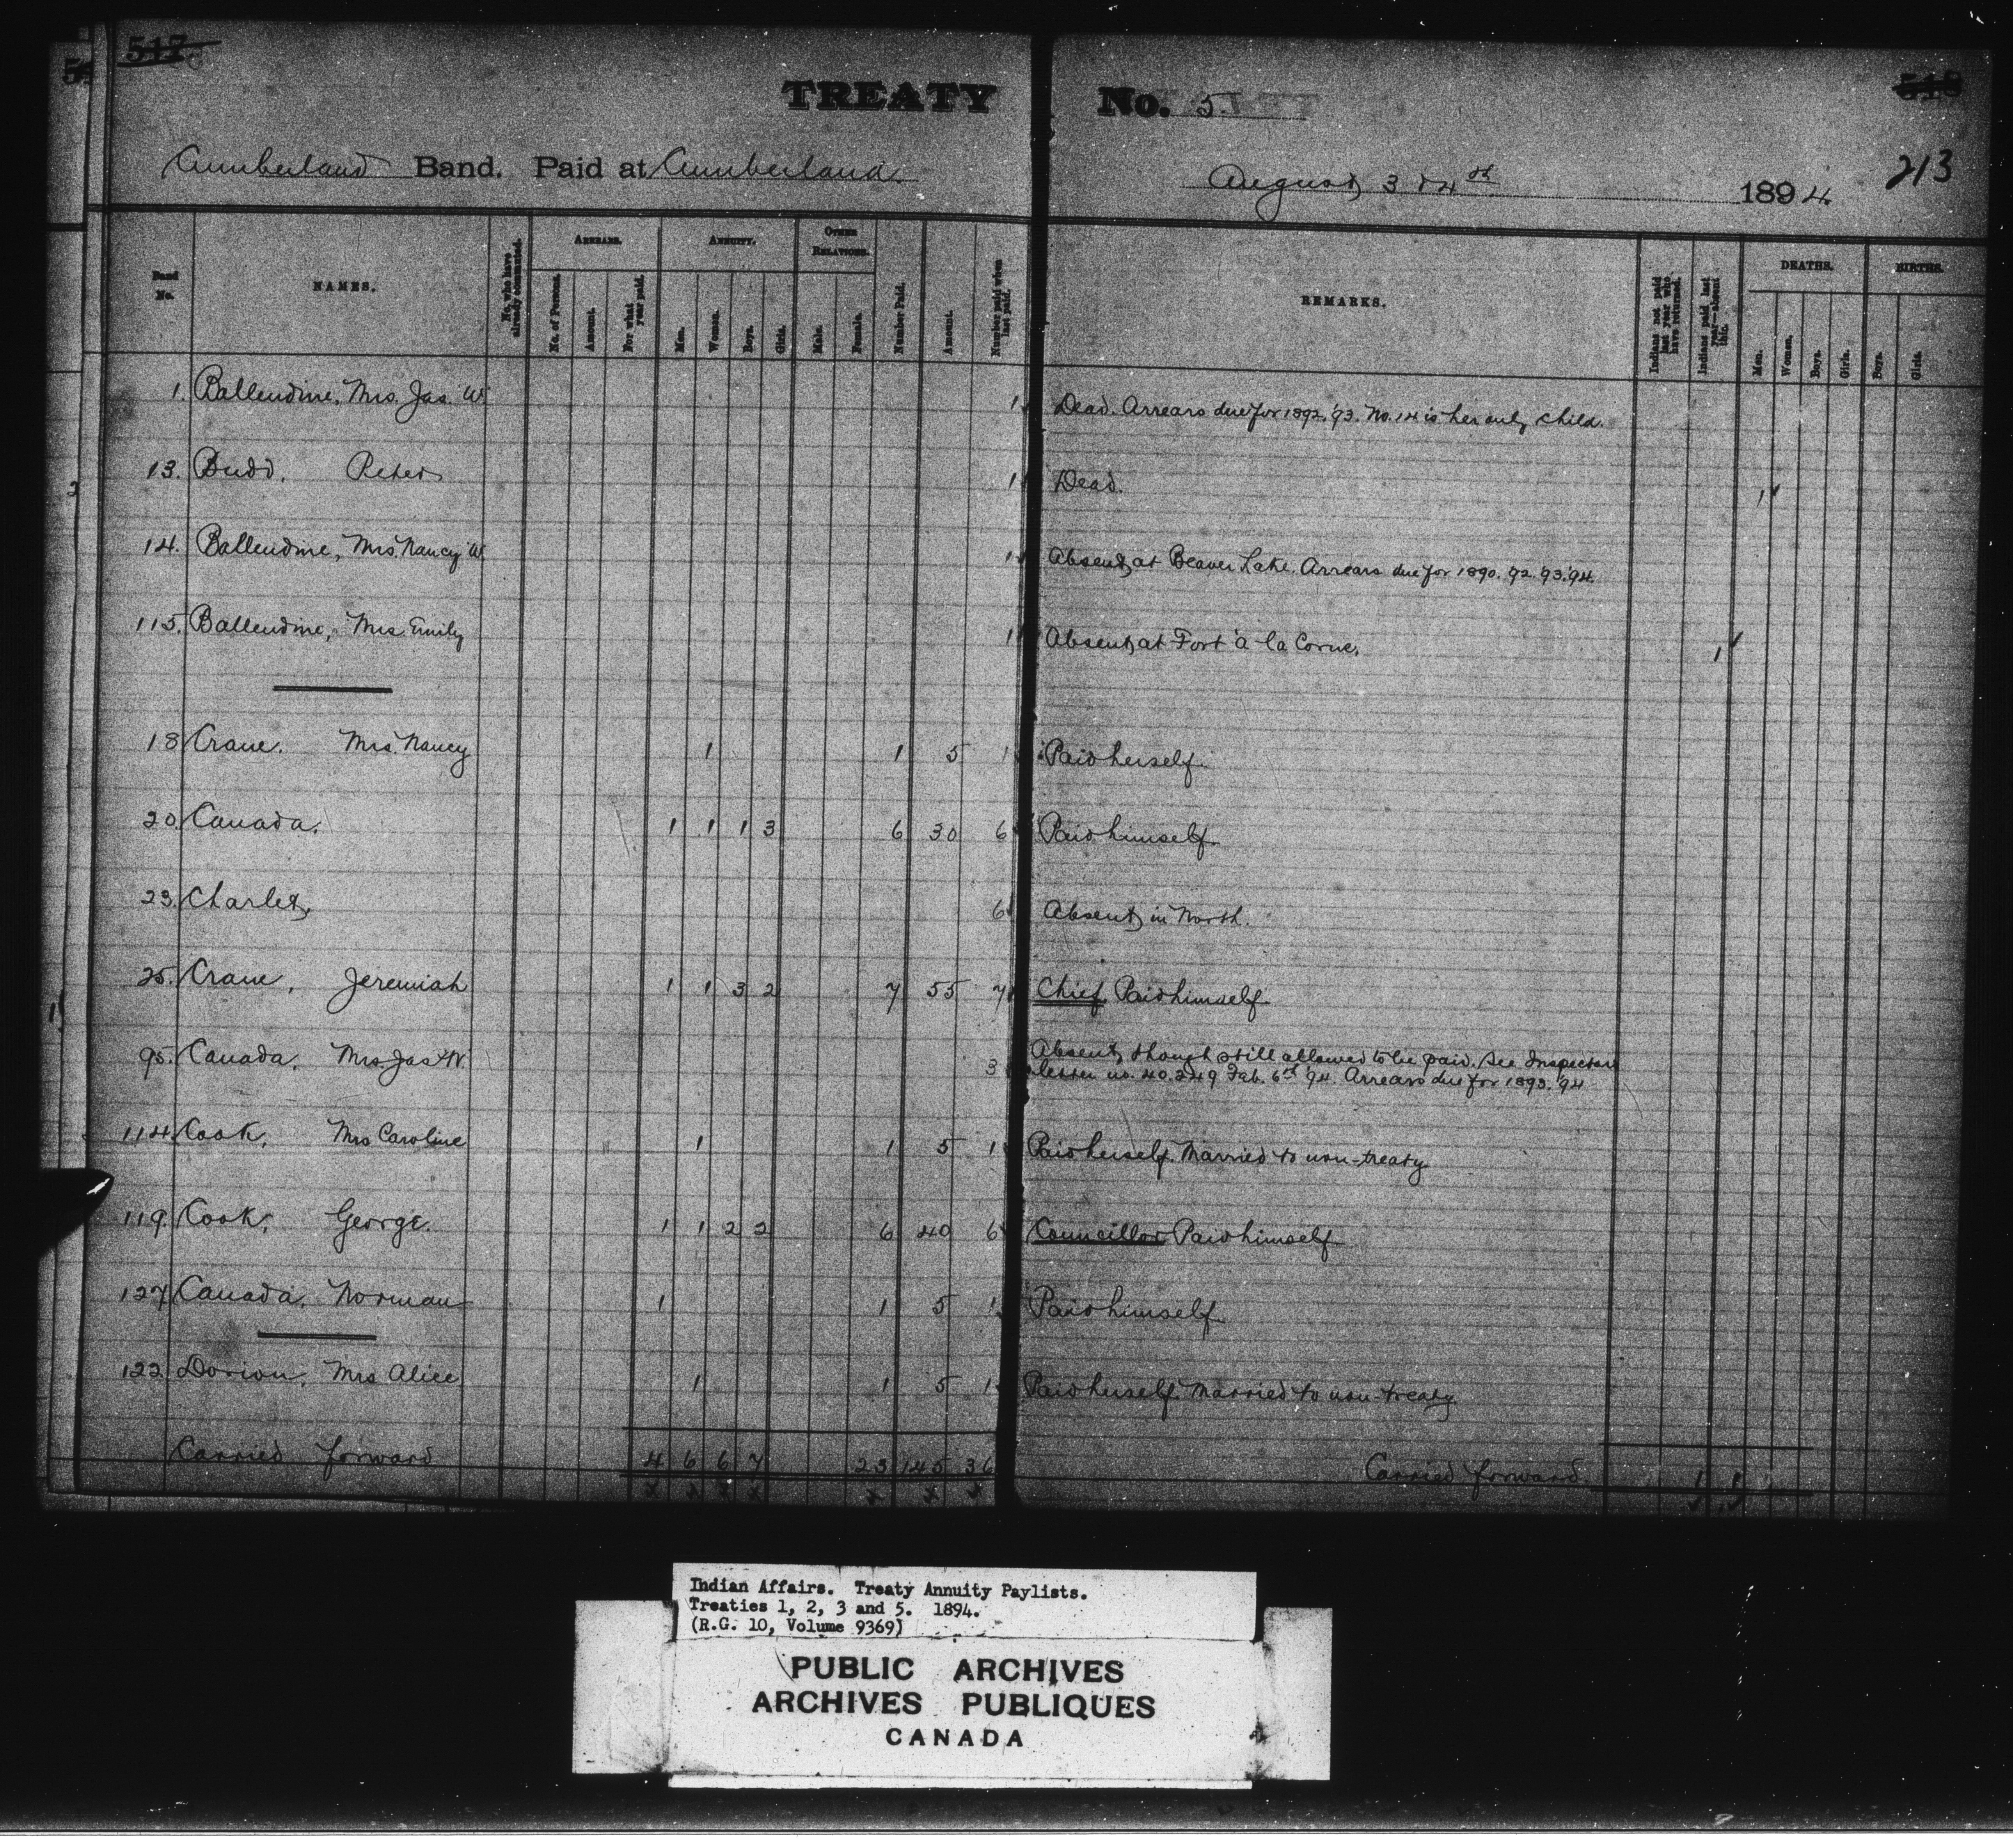 517
518
TREATY No. 5
213
Cumberland Band. Paid at Cumberland August 3 & 4th 1894.
Band No.
NAMES.
No. who have already commuted.
ARREARS.
No. of Persons.
Amount.
For what year paid.
ANNUITY.
Men.
Women.
Boys.
Girls.
OTHER RELATIONS.
Male.
Female.
Number Paid.
Amount.
Number paid when last paid.
REMARKS.
Indians not paid last year who have returned.
Indians paid last year—absent this.
DEATHS.
Men.
Women.
Boys.
Girls.
BIRTHS.
Boys.
Girls.
1. Ballendine, Mrs. Jas. W. 1 Dead. Arrears due for 1892. '93. No. 14 is her only child.
13. Budd, Peter 1 Dead. 1
14. Ballendine, Mrs. Nancy W. 1 Absent, at Beaver Lake. Arrears due for 1890. 92. 93. 94.
115. Ballendine, Mrs. Emily 1 Absent, at Fort à la Corne. 1
18 Crane. Mrs. Nancy 1 1 5 1 Paid herself.
20. Canada. 1 1 1 3 6 30 6 Paid himself.
23. Charlet, 6 Absent, in North.
25. Crane, Jeremiah 1 1 3 2 7 55 7 Chief. Paid himself.
95. Canada, Mrs. Jas W. 3 Absent, though still allowed to be paid. See Inspectors
letter no. 40.249 Feb. 6th '94. Arrears due for 1893. '94
114. Cook, Mrs Caroline 1 1 5 1 Paid herself. Married to non-treaty.
119. Cook, George. 1 1 2 2 6 40 6 Councillor Paid himself.
127 Canada, Norman 1 1 5 1 Paid himself.
122. Dorion, Mrs Alice 1 1 5 1 Paid herself. Married to non-treaty.
Carried forward 4 6 6 7 23 145 36 Carried forward
Indian Affairs. Treaty Annuity Paylists.
Treaties 1, 2, 3 and 5. 1894.
(R.G. 10, Volume 9369)
PUBLIC ARCHIVES
ARCHIVES PUBLIQUES
CANADA